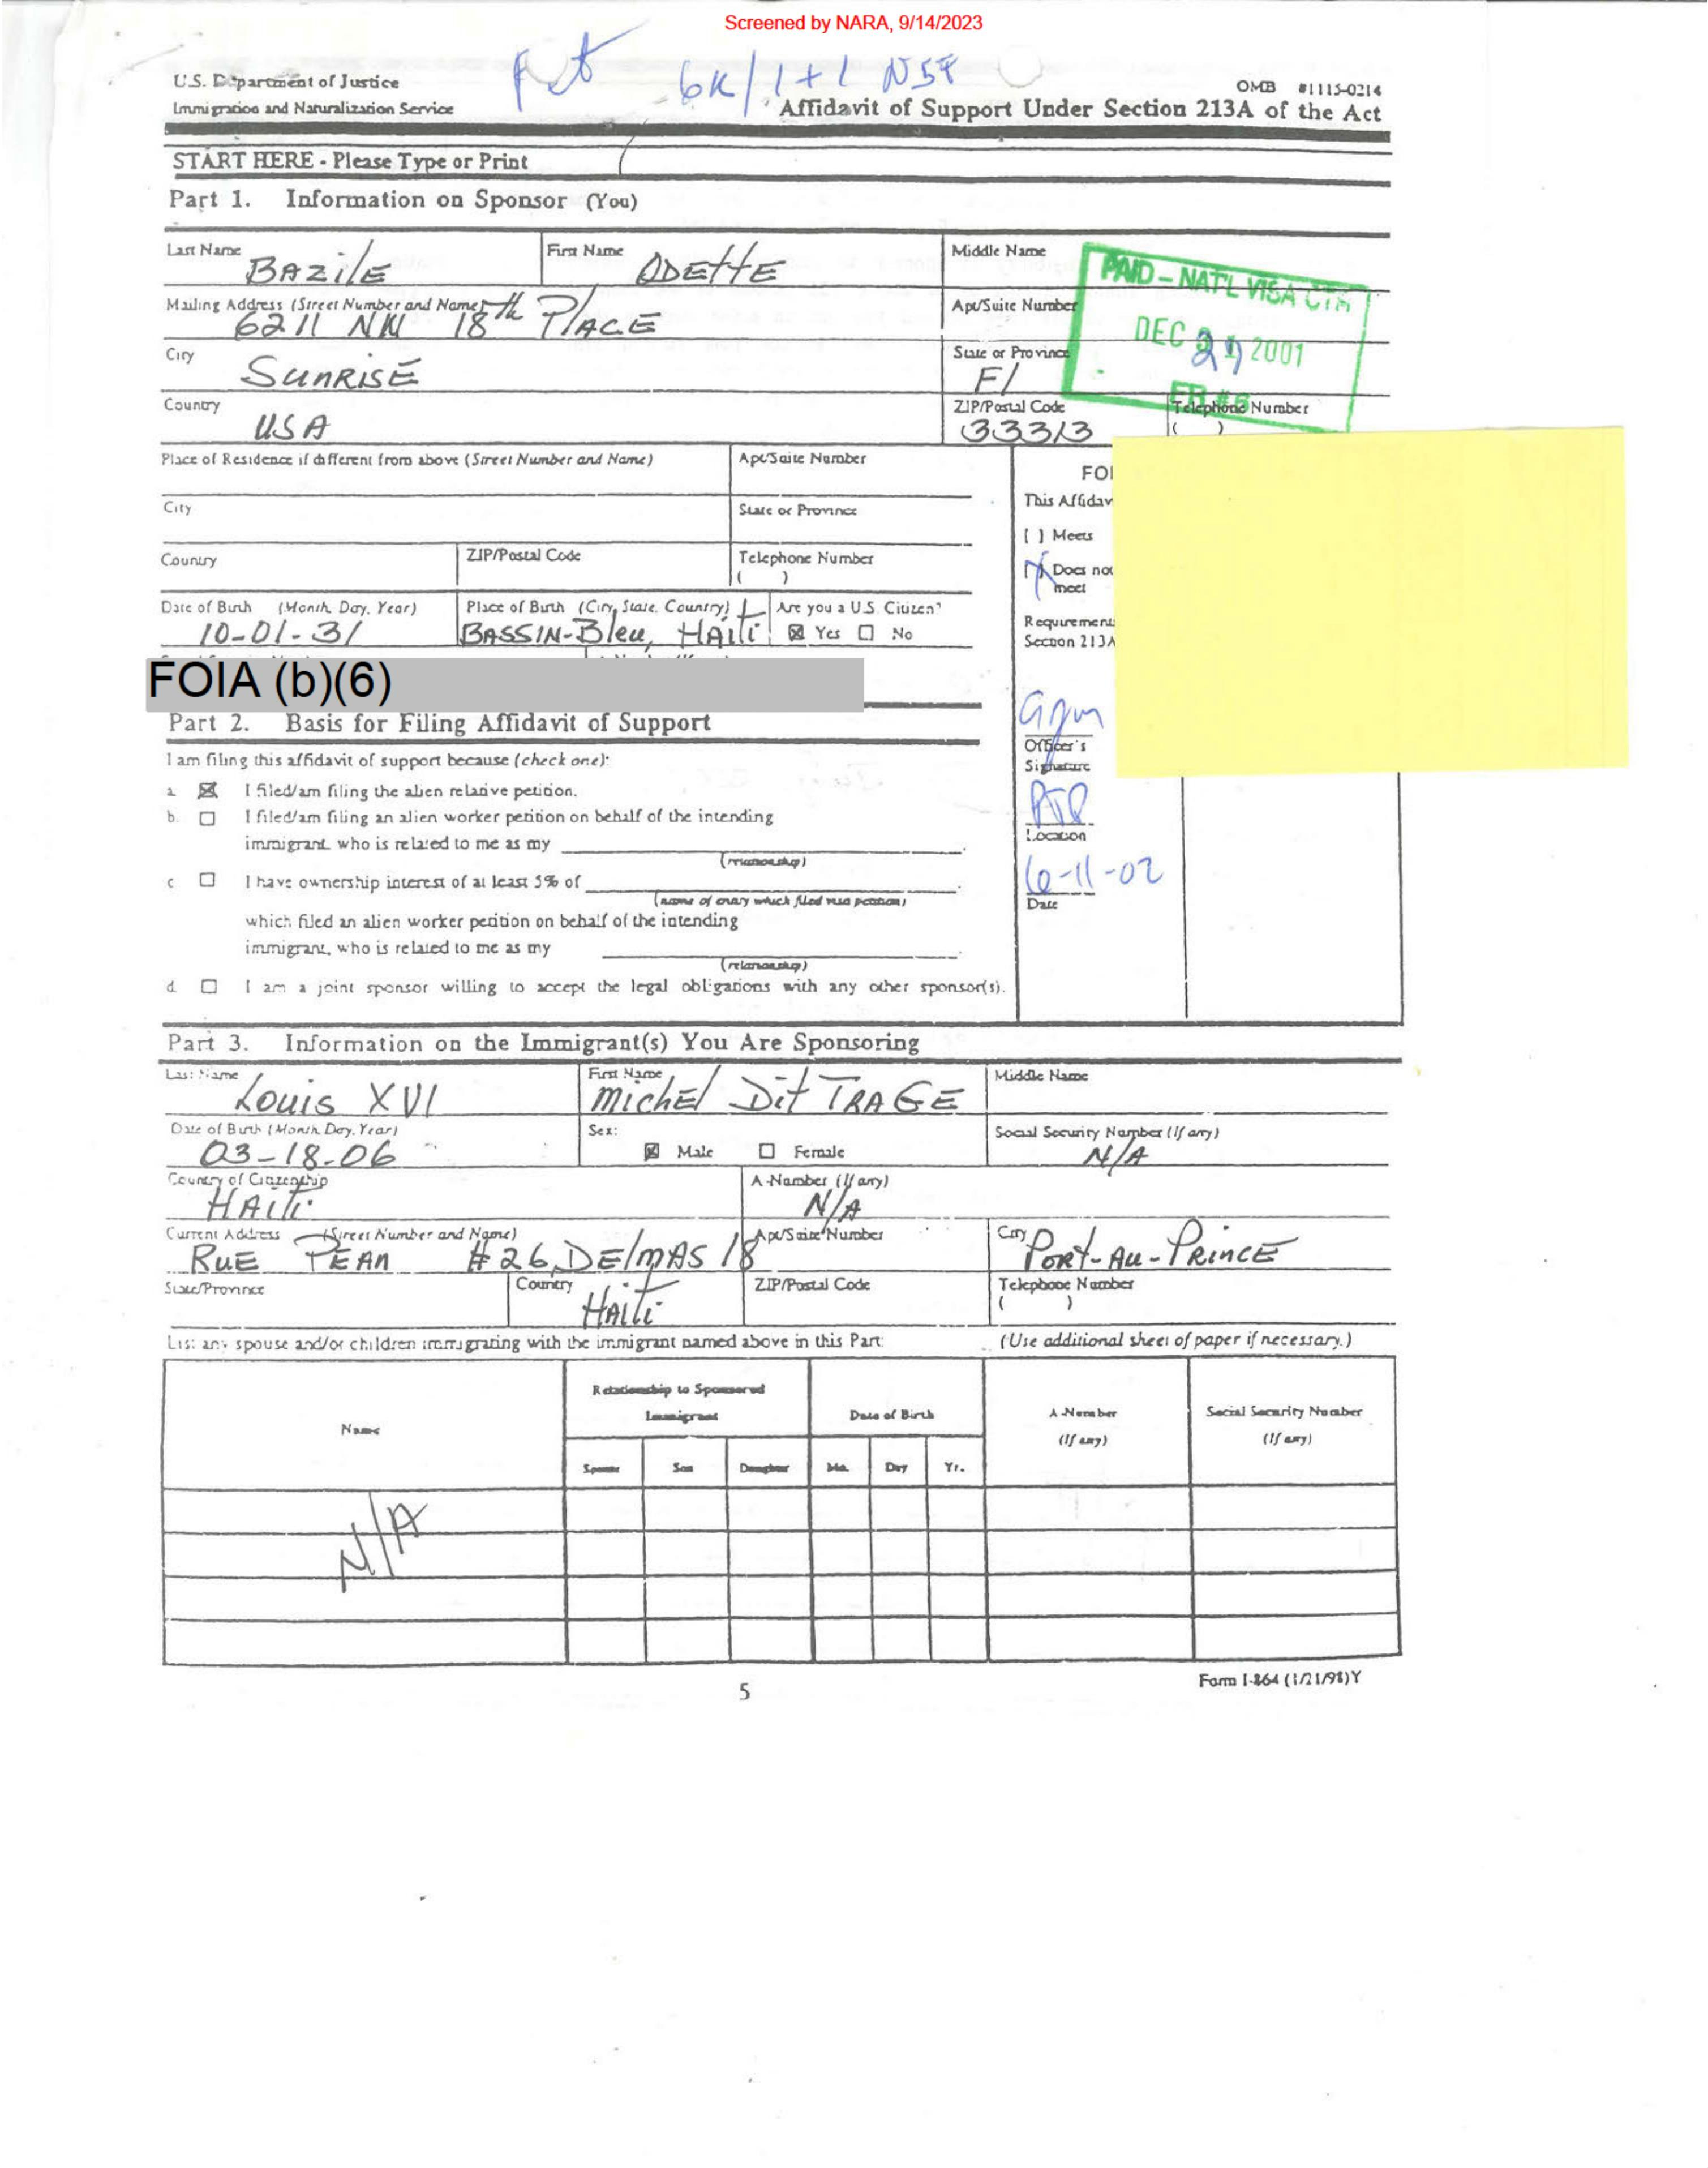 Screened by NARA, 9/14/2023
U.S. Department of Justice
Immigration and Naturalization Service
6K/1+1 N54
OMB #1115-0214
Affidavit of Support Under Section 213A of the Act
START HERE - Please Type or Print
Part 1. Information on Sponsor (You)
Last Name BAZilE First Name ODEttE Middle Name
PAID - NAT'L VISA CTR
DEC 21 2001
FR #6
Mailing Address (Street Number and Name) 6211 NW 18th PlACE Apt/Suite Number
City SUNRISE State or Province Fl
Country USA ZIP/Postal Code 33313 Telephone Number ( )
Place of Residence if different from above (Street Number and Name) Apt/Suite Number
City State or Province
Country ZIP/Postal Code Telephone Number ( )
Date of Birth (Month, Day, Year) 10-01-31 Place of Birth (City, State, Country) BASSIN-Bleu, HAiti Are you a U.S. Citizen? Yes No
FOIA (b)(6)
FO
This Affidav
[ ] Meets
[X] Does not
meet
Requirement
Section 213A
Officer's
Signature
Location
6-11-02
Date
Part 2. Basis for Filing Affidavit of Support
I am filing this affidavit of support because (check one):
a. I filed/am filing the alien relative petition.
b. I filed/am filing an alien worker petition on behalf of the intending
immigrant, who is related to me as my
(relationship)
c I have ownership interest of at least 5% of
(name of entity which filed visa petition)
which filed an alien worker petition on behalf of the intending
immigrant, who is related to me as my
(relationship)
d. I am a joint sponsor willing to accept the legal obligations with any other sponsor(s).
Part 3. Information on the Immigrant(s) You Are Sponsoring
Last Name Louis XVI First Name MichEl Dit TRAGE Middle Name
Date of Birth (Month, Day, Year) 03-18-06 Sex: Male Female Social Security Number (If any) N/A
Country of Citizenship HAiti A-Number (If any) N/A
Current Address (Street Number and Name) RuE PEAN #26, DElMAS 18 Apt/Suite Number City PORt-Au-PRiNCE
State/Province Country HAiti ZIP/Postal Code Telephone Number ( )
List any spouse and/or children immigrating with the immigrant named above in this Part: (Use additional sheet of paper if necessary.)
Name Relationship to Sponsored Immigrant Date of Birth A-Number (If any) Social Security Number (If any)
Spouse Son Daughter Mo. Day Yr.
N/A
5
Form I-864 (1/21/98)Y